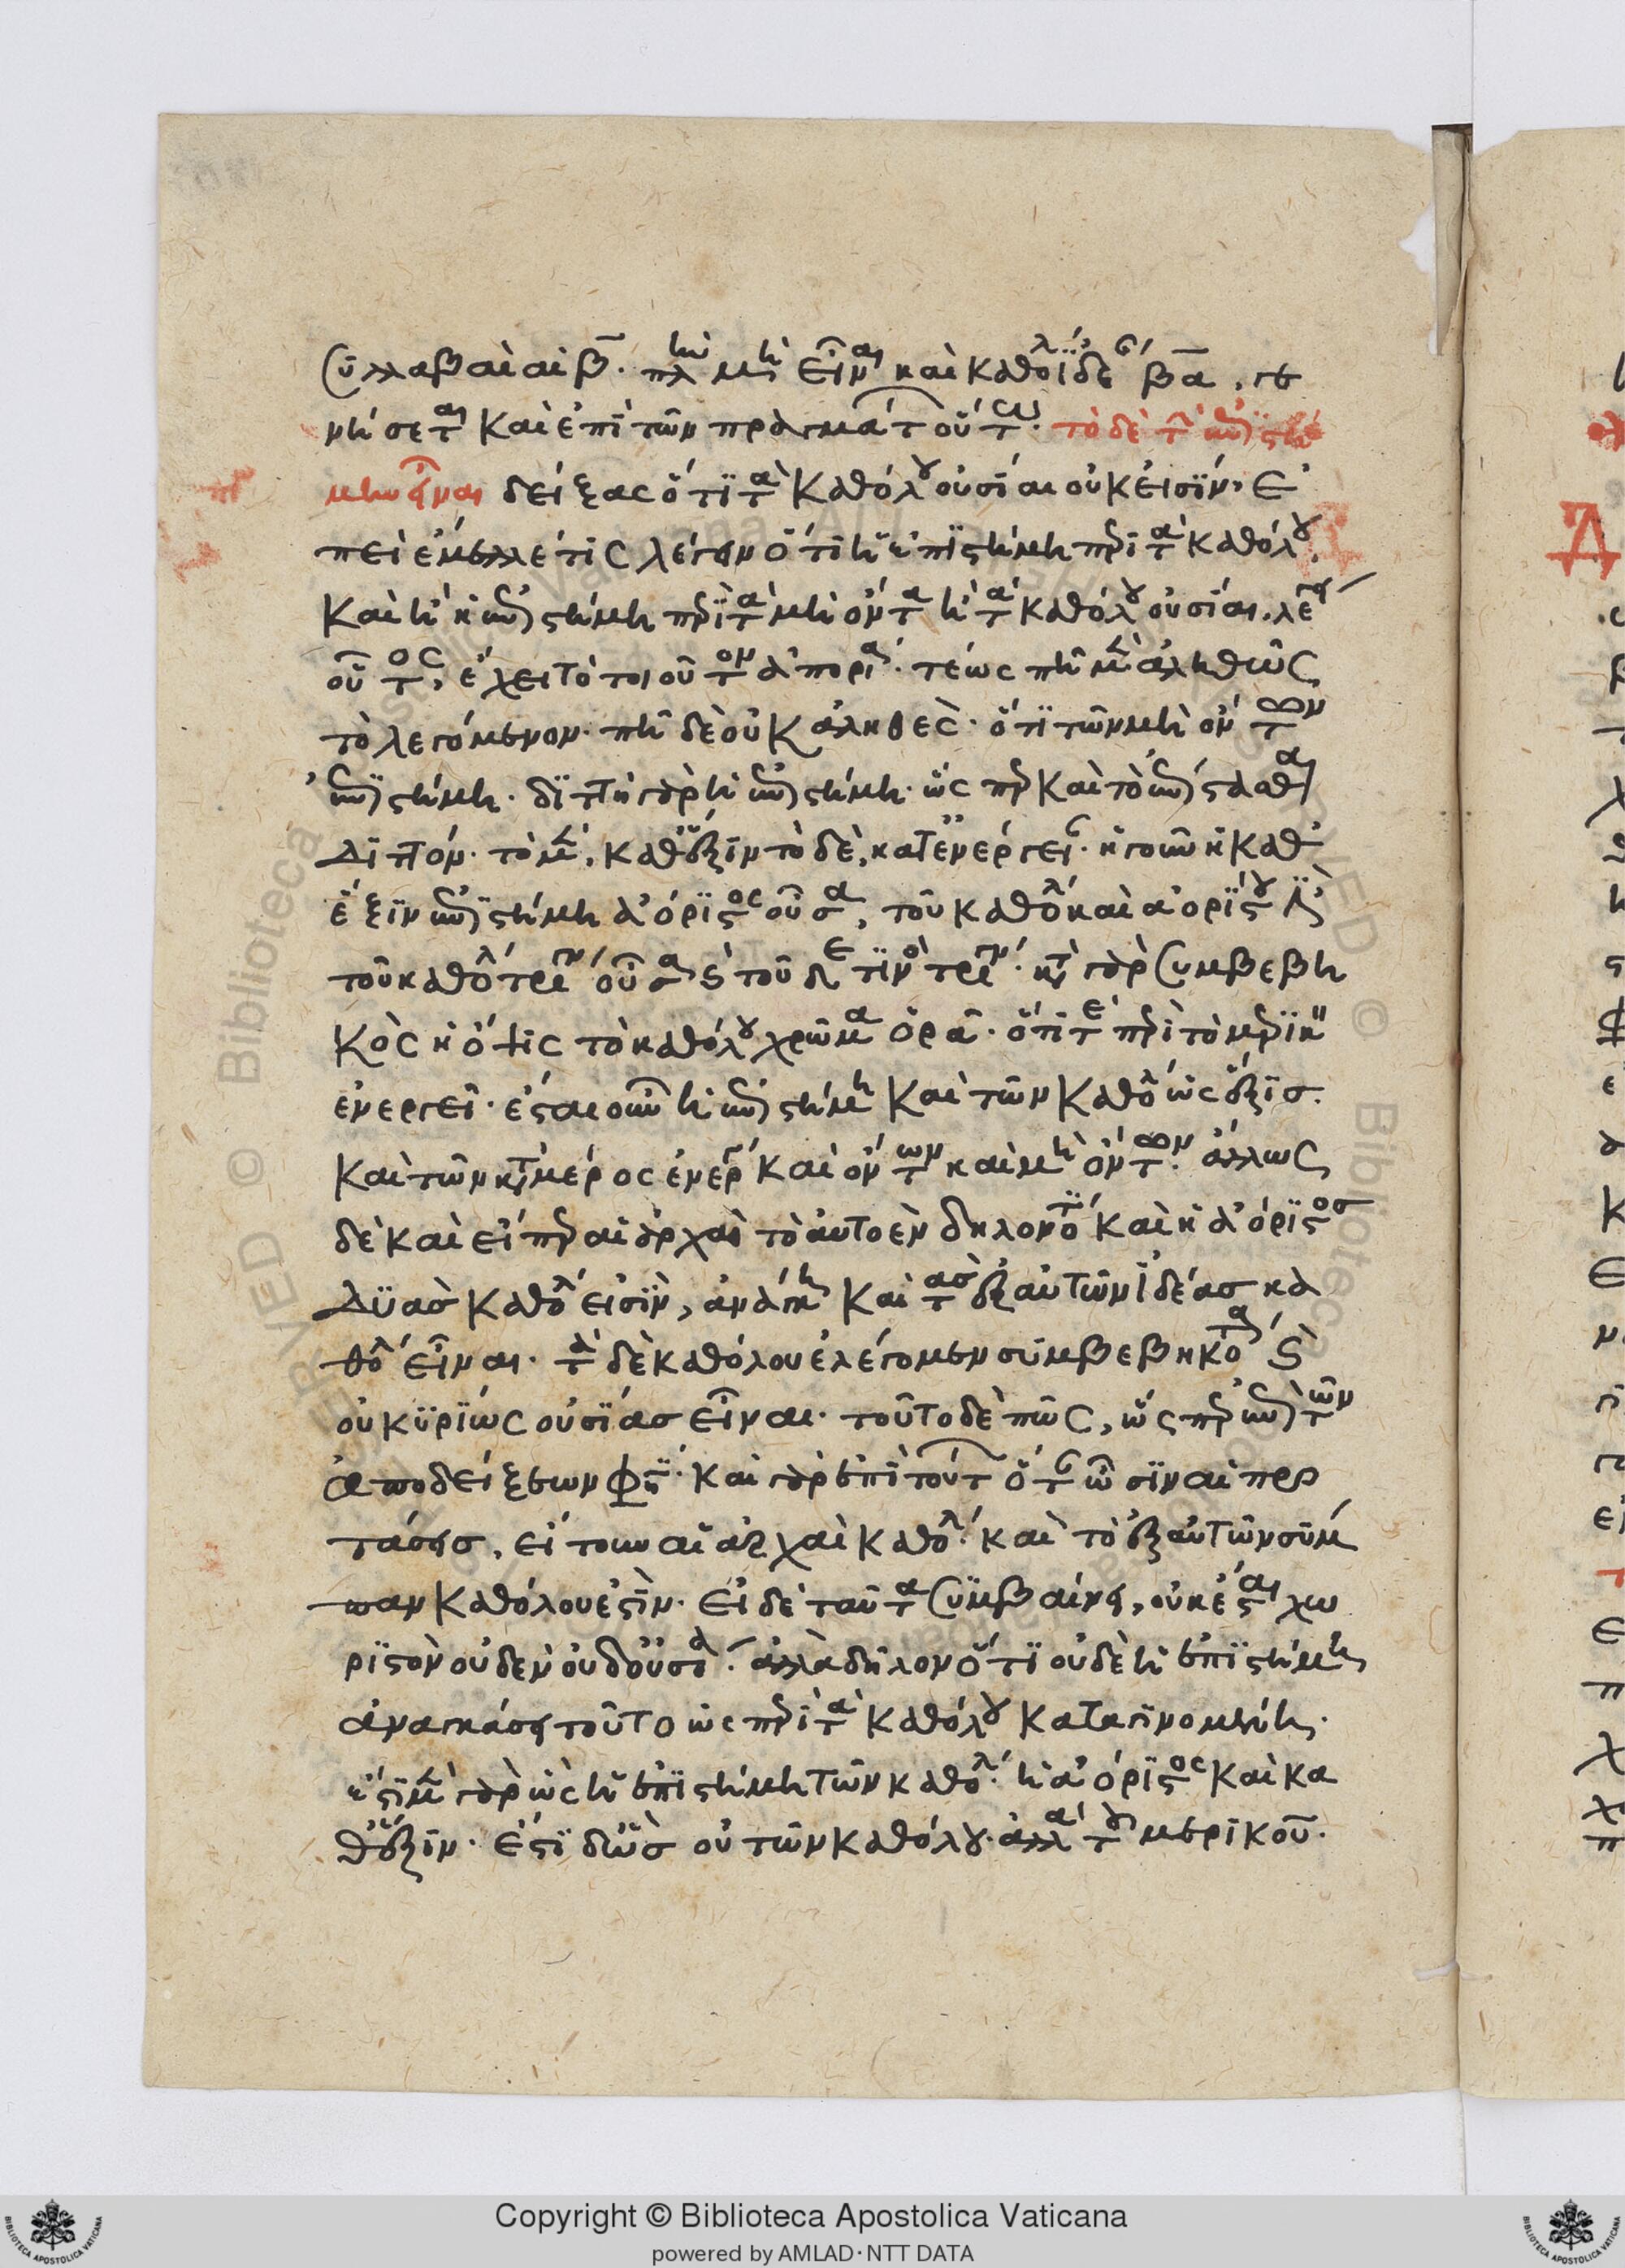 συλλαβαὶ αἱ β̅. πλὴν μὴ εἶναι καὶ καθόλου ἰδέ βα, γε
νήσεται καὶ ἐπὶ τῶν πραγμάτων οὕτω. τὸ δὲ τὴν ἐπιστή
μην εἶναι δείξας ὅτι τὰ καθόλου οὐσίαι οὐκ εἰσίν, ἐ
πεὶ ἔμελλέ τις λέγειν ὅτι ἡ ἐπιστήμη περὶ τὰ καθόλου.
καὶ ἢ ἡ ἐπιστήμη περὶ τὰ μὴ ὄντα ἢ τὰ καθόλου οὐσίαι. λέγει
οὗτος, ἔχει τὸ τοιοῦτον ἀπορίαν. τέως πῆ μὲν ἀληθῶς
τὸ λεγόμενον. πῆ δὲ οὐκ ἀληθές. ὅτι τῶν μὴ ὄντων
ἐπιστήμη. διττὴ γὰρ ἡ ἐπιστήμη. ὥσπερ καὶ τὸ ἐπίστασθαι
διττόν. τὸ μὲν, καθ' ἕξιν τὸ δὲ, κατ' ἐνέργειαν. ἡ γοῦν ἡ καθ'
ἕξιν ἐπιστήμη ἀόριστος οὖσα, τοῦ καθόλου καὶ ἀορίστου ἐστίν
τοῦ καθόλου
κὸς ἡ ὄψις τὸ καθόλου χρῶμα ὁρᾷ. ὅτι τε περὶ τὸ μερικὸν
ἐνεργεῖ. ἔσται οὖν ἡ ἐπιστήμη καὶ τῶν καθόλου ὡς ἕξις.
καὶ τῶν κατὰ μέρος ἐνεργείᾳ καὶ ὄντων καὶ μὴ ὄντων. ἄλλως
δὲ καὶ εἴπερ αἱ ἀρχαὶ τὸ αὐτοὲν δηλονότι καὶ ἡ ἀόριστος
δυὰς καθόλου εἰσὶν, ἀνάγκη καὶ τὰς ἐξ αὐτῶν ἰδέας κα
θόλου εἶναι. τὰ δὲ καθόλου ἐλέγομεν συμβεβηκότα καὶ
οὐ κυρίως οὐσίας εἶναι. τοῦτο δὲ πῶς, ὥσπερ ἐπὶ τῶν
ἀποδείξεων φησί. καὶ γὰρ ἐπὶ τούτων ὅταν ὦσιν αἱ προ
τάσεις, εἴτουν αἱ ἀρχαὶ καθόλου. καὶ τὸ ἐξ αὐτῶν σύμ
παν καθόλου ἐστίν. εἰ δὲ ταῦτα συμβαίνει, οὐκ ἔσται χω
ριστὸν οὐδὲν οὐδ' οὐσία. ἀλλὰ δῆλον ὅτι οὐδὲ ἡ ἐπιστήμη
ἀναγκάσει τοῦτο ὡς περὶ τὰ καθόλου καταγινομένη.
ἔστι μὲν γὰρ ὡς ἡ ἐπιστήμη τῶν καθόλου. ἡ ἀόριστος καὶ κα
θ' ἕξιν. ἔστι δ' ὡς οὐ τῶν καθόλου. ἀλλὰ τοῦ μερικοῦ.
Copyright © Biblioteca Apostolica Vaticana
powered by AMLAD·NTT DATA